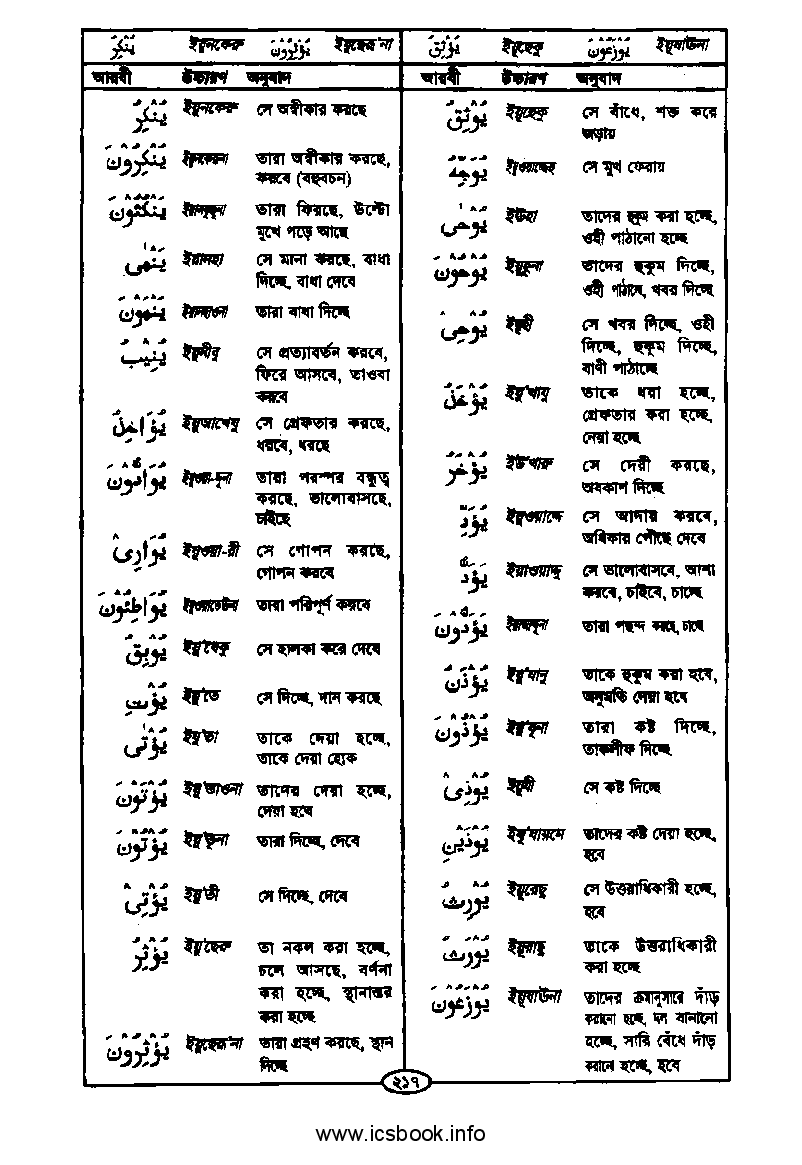 يُنْكِرُ ইয়ুনকেরু يُؤْثِرُوْنَ ইয়ুছেরূ'না
يُوْثِقُ ইয়ূছেকু يُوْزَعُوْنَ ইয়ূযাউনা
আরবী উচ্চারণ অনুবাদ
يُنْكِرُ ইয়ুনকেরু সে অস্বীকার করছে
يُنْكِرُوْنَ ইয়ুনকেরূনা তারা অস্বীকার করছে,
করবে (বহুবচন)
يَنْكُثُوْنَ তারা ফিরছে, উল্টো
মুখে পড়ে আছে
يَنْهٰى ইয়ানহা সে মানা করছে, বাধা
দিচ্ছে, বাধা দেবে
يَنْهَوْنَ ইয়ানহাওনা তারা বাধা দিচ্ছে
يُنِيْبُ ইয়ুনীবু সে প্রত্যাবর্তন করবে,
ফিরে আসবে, তাওবা
করবে
يُؤَاخِذُ ইয়ুআখেযু সে গ্রেফতার করছে,
ধরবে, ধরছে
يُوَادُّوْنَ ইয়ুওয়া-দ্দূনা তারা পরস্পর বন্ধুত্ব
করছে, ভালোবাসছে,
চাইছে
يُوَارِىْ ইয়ুওয়া-রী সে গোপন করছে,
গোপন করবে
يُوَاطِئُوْنَ তারা পরিপূর্ণ করবে
يُوْبِقُ ইয়ূ'বেকু সে হালকা করে দেবে
يُؤْتِ ইয়ু'তে সে দিচ্ছে, দান করছে
يُؤْتٰى ইয়ু'তা তাকে দেয়া হচ্ছে,
তাকে দেয়া হোক
يُؤْتَوْنَ ইয়ু'তাওনা তাদের দেয়া হচ্ছে,
দেয়া হবে
يُؤْتُوْنَ ইয়ু'তূনা তারা দিচ্ছে, দেবে
يُؤْتِىْ ইয়ু'তী সে দিচ্ছে, দেবে
يُؤْثِرُ ইয়ু'ছেরু তা নকল করা হচ্ছে,
চলে আসছে, বর্ণনা
করা হচ্ছে, স্থানান্তর
করা হচ্ছে
يُؤْثِرُوْنَ ইয়ুছেরূ'না তারা গ্রহণ করছে, স্থান
দিচ্ছে
আরবী উচ্চারণ অনুবাদ
يُوْثِقُ ইয়ূছেকু সে বাঁধে, শক্ত করে
জড়ায়
يُوَجِّهُ ইয়ুওয়াজ্জেহু সে মুখ ফেরায়
يُوْحٰى ইউহা তাদের হুকুম করা হচ্ছে,
ওহী পাঠানো হচ্ছে
يُوْحُوْنَ ইয়ূহূনা তাদের হুকুম দিচ্ছে,
ওহী পাঠাচ্ছে, খবর দিচ্ছে
يُوْحِىْ ইয়ূহী সে খবর দিচ্ছে, ওহী
দিচ্ছে, হুকুম দিচ্ছে,
বাণী পাঠাচ্ছে
يُؤْخَذُ ইয়ু'খাযু তাকে ধরা হচ্ছে,
গ্রেফতার করা হচ্ছে,
নেয়া হচ্ছে
يُؤَخَّرُ ইউ'খারু সে দেরী করছে,
অবকাশ দিচ্ছে
يُؤَدِّ ইয়ুওয়াদ্দে সে আদায় করবে,
অধিকার পৌছে দেবে
يَوَدُّ ইয়াওয়াদ্দু সে ভালোবাসবে, আশা
করবে, চাইবে, চাচ্ছে
يَوَدُّوْنَ তারা পছন্দ করছে, চাচ্ছে
يُؤْذَنُ ইয়ু'যানু তাকে হুকুম করা হবে,
অনুমতি দেয়া হবে
يُؤْذُوْنَ ইয়ু'যূনা তারা কষ্ট দিচ্ছে,
তাকলীফ দিচ্ছে
يُوْذِىْ ইয়ূযী সে কষ্ট দিচ্ছে
يُؤْذَيْنِ ইয়ু'যায়নে তাদের কষ্ট দেয়া হচ্ছে,
হবে
يُوْرِثُ ইয়ূরেছু সে উত্তরাধিকারী হচ্ছে,
হবে
يُوْرَثُ ইয়ূরাছু তাকে উত্তরাধিকারী
করা হচ্ছে
يُوْزَعُوْنَ ইয়ূযাউনা তাদের ক্রমানুসারে দাঁড়
করানো হচ্ছে, দল বানানো
হচ্ছে, সারি বেঁধে দাঁড়
করানো হচ্ছে, হবে
২১৭
www.icsbook.info